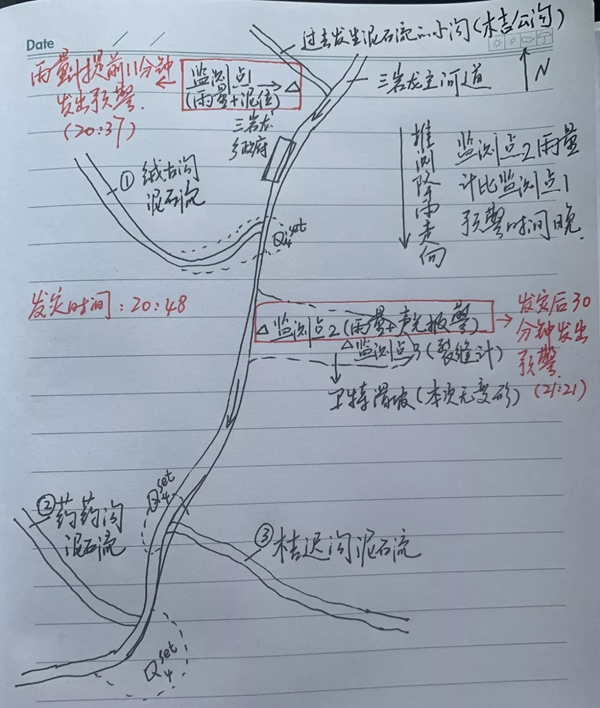 Date
过去发生泥石流的小沟(木吉公沟)
雨量计提前11分钟
发出预警.
(20:37)
监测点1
(雨量+泥位)
三岩龙主河道
N
三岩龙
乡政府
推测降雨走向
监测点2雨量
计比监测点1
预警时间晚.
①绒古沟
泥石流
Q4set
发灾时间:20:48
监测点2(雨量+声光报警)
监测点3(裂缝计)
发灾后30
分钟发出
预警.
(21:21)
卫特滑坡(本次无变形)
Q4set
②药药沟
泥石流
③桔迟沟泥石流
Q4set